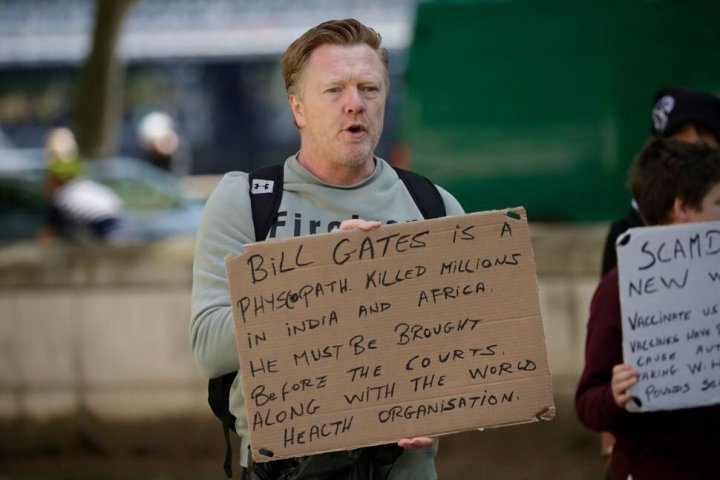 BILL GATES IS A
PHYSCOPATH. KILLED MILLIONS
IN INDIA AND AFRICA.
HE MUST BE BROUGHT
BEFORE THE COURTS.
ALONG WITH THE WORLD
HEALTH ORGANISATION.
SCAMD
NEW W
VACCINATE US
VACCINES HAVE
CAUSE AUT
W.H
POUNDS